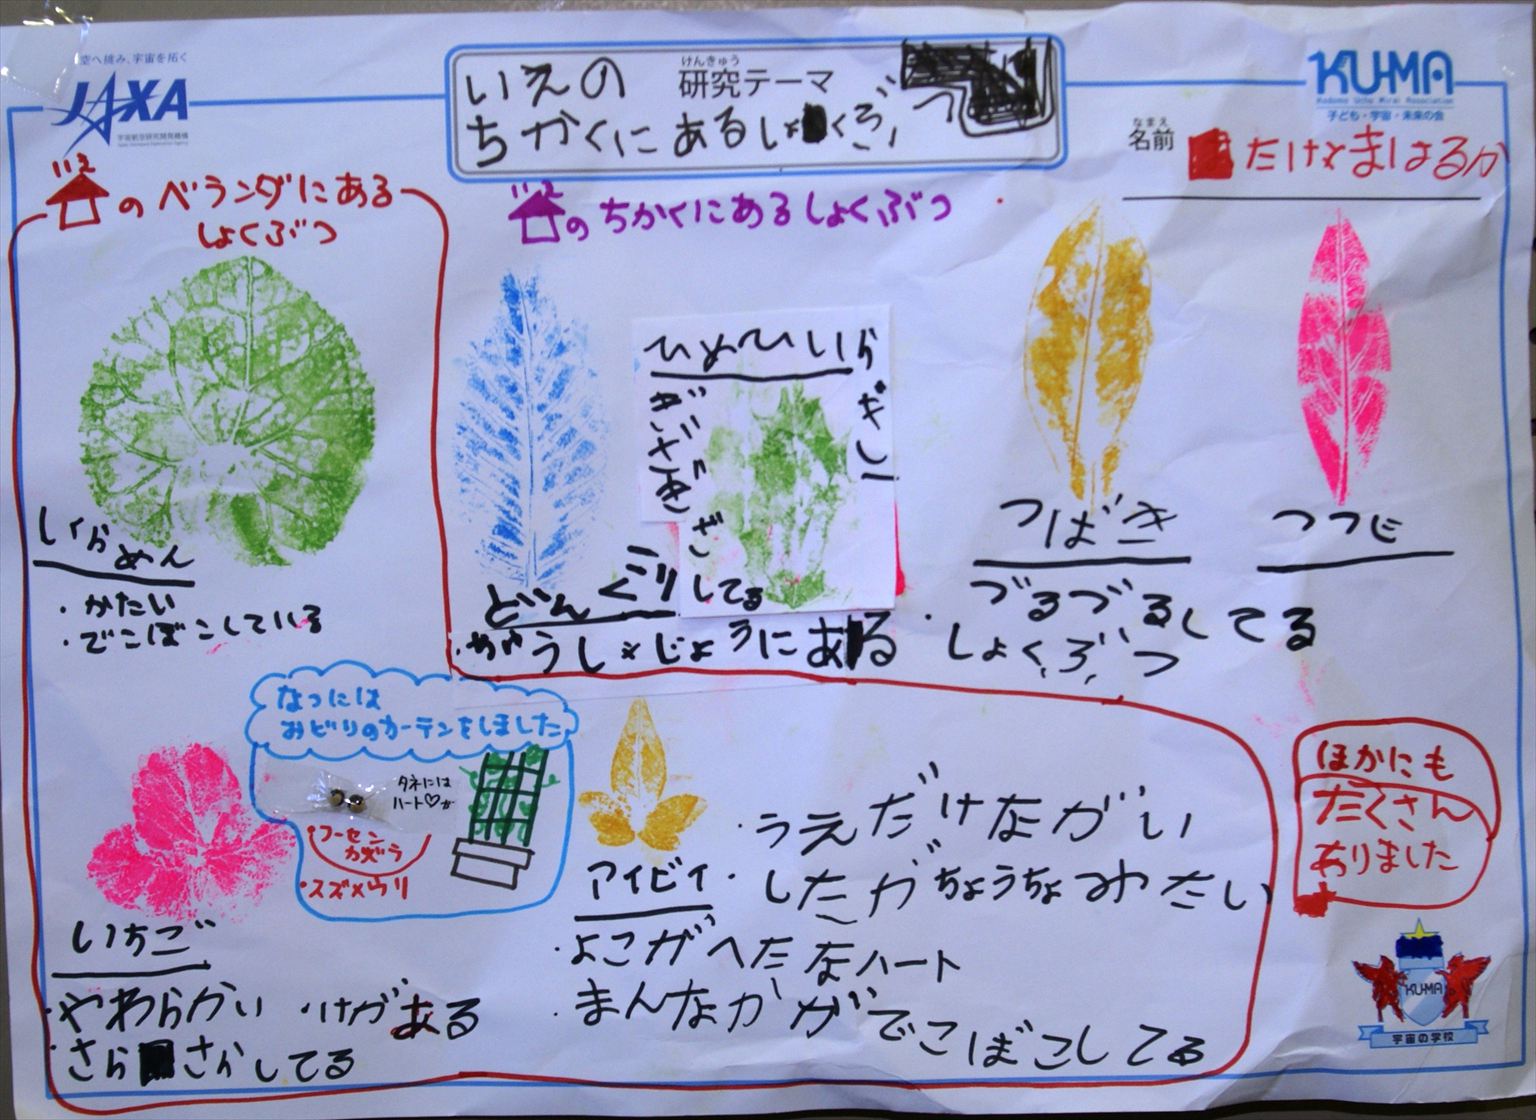 空へ挑み、宇宙を拓く
JAXA
宇宙航空研究開発機構
けんきゅう
研究テーマ
いえの
ちかくにあるしょくぶつ
KU-MA
Kodomo Uchu Mirai Association
子ども・宇宙・未来の会
なまえ
名前
たけとまはるか
いえ
のベランダにある
しょくぶつ
しくらめん
・かたい
・でこぼこしている
いえ
のちかくにあるしょくぶつ
どんぐり
ひめひいらぎし
ぎざぎざしてる
つばき
・づるづるしてる
しょくぶつ
つつじ
なつには
みどりのカーテンをしました
タネには
ハート♡が
・フーセン
カズラ
・スズメウリ
いちご
・やわらかい
・けがある
・さらさらしてる
アイビィ
・うえだけながい
・したがちょうちょみたい
・よこがへたなハート
・まんなかがでこぼこしてる
ほかにも
たくさん
ありました
KU-MA
宇宙の学校